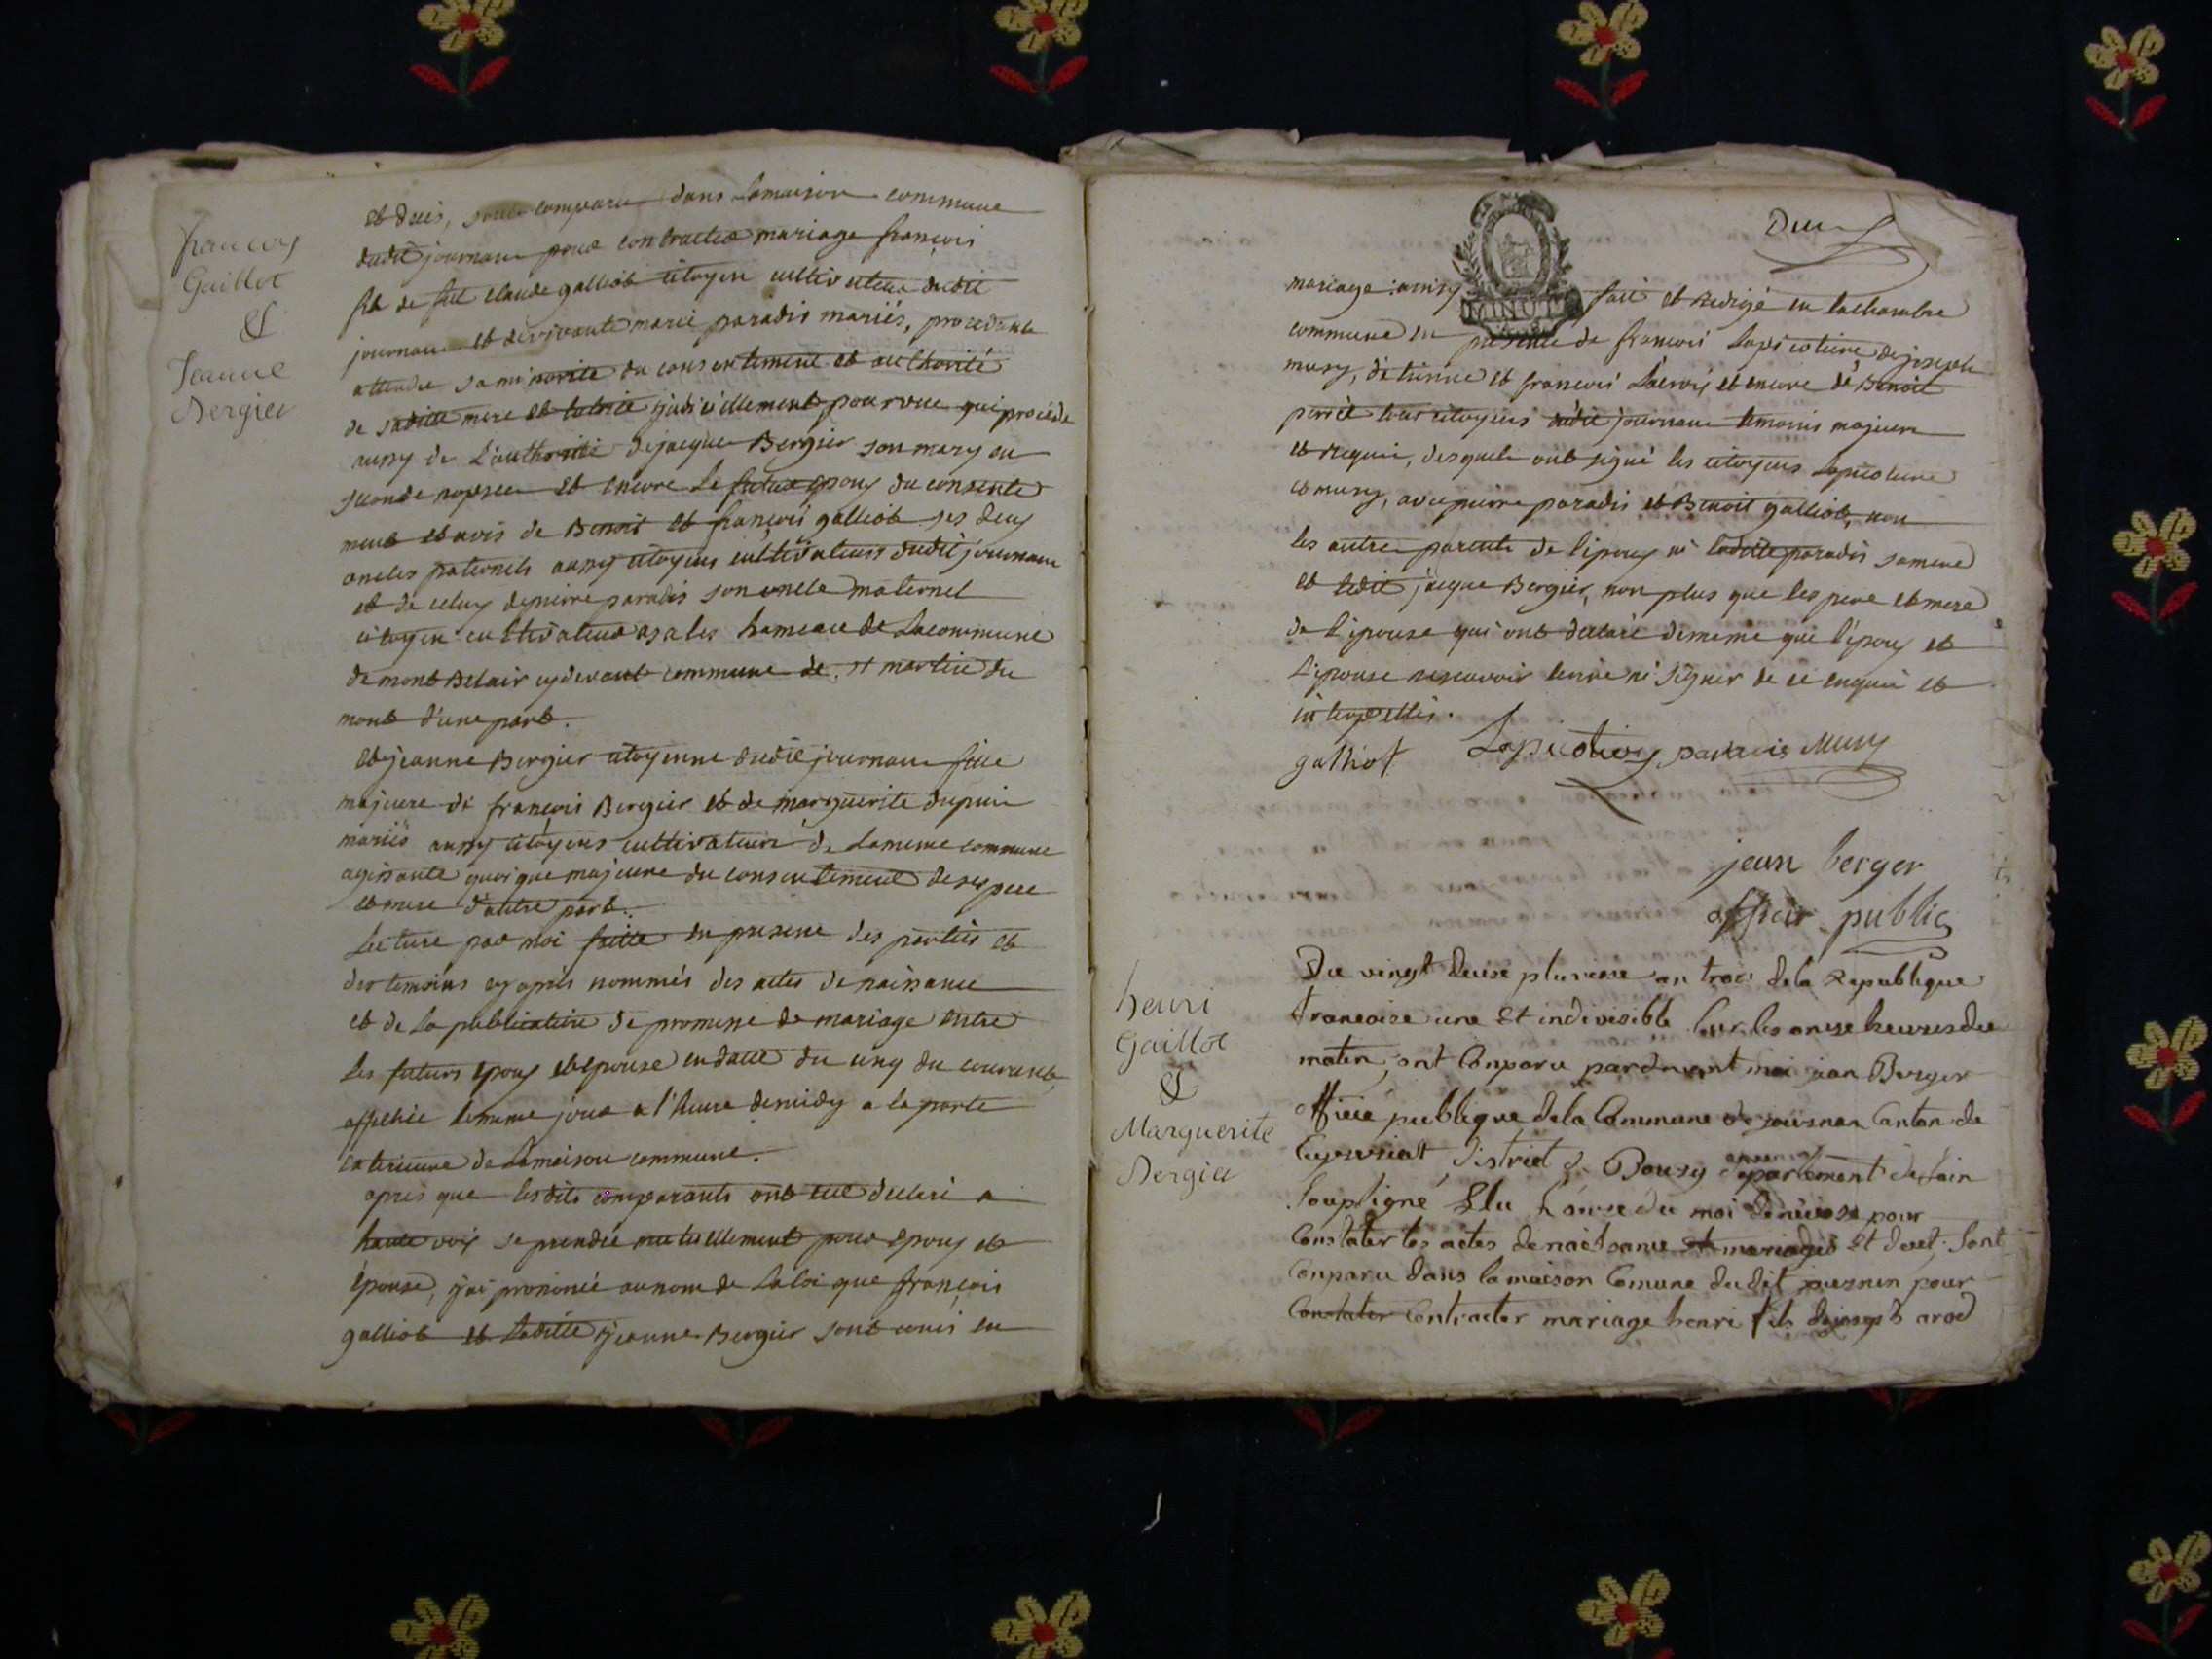 françois
Gaillot
&
Jeanne
Bergier
et deces, sont comparu dans lamaison commune
dudit journan pour contracter mariage françois
fils de feu claude galliot citoyen cultivateur dudit
journan et de vivante marie paradis mariés, procedant
attendu sa minorité du consentement et authorité
de saditte mere et tutrice judiciellement pourvue qui procède
aussy de l'authorité de jacque Bergier son mary en
seconde nopces et encore le futur epoux du consente
ment et avis de Benoit et françois galliot ses deux
oncles paternels aussy citoyens cultivateurs dudit journan
et de celuy de pierre paradis son oncle maternel
citoyen cultivateur hameau de lacommune
de mont Belair cy devant commune de st martin du
mont d'une part.
Et jeanne Bergier citoyenne dudit journan fille
majeure de françois Bergier et de marguerite dupuis
mariés aussy citoyens cultivateurs de lameme commune
agissante quoique majeure du consentement de ses pere
et mere d'autre part.
Lecture par moi faitte en presence des parties et
des temoins cy après nommés des actes de naissance
et de la publication de promesse de mariage entre
les futurs epoux et epouse en datte du cinq du courant,
affichée lememe jour a l'heure de midy a la porte
exterieure de lamaison commune.
apres que lesdits comparants ont eut declaré a
haute voix se prendre mutuellement pour epoux et
épouse, j'ai prononcé au nom de la loi que françois
galliot et laditte jeanne Bergier sont unis en
MINUT
mariage : ainsy fait et redigé en lachambre
commune en presence de françois Lapicotiere de joseph
musy, d'etienne et françois Lacroix et encore de Benoit
perret tous citoyens dudit journan temoins majeurs
et requis, desquels ont signé les citoyens Lapicotiere
et musy, avec pierre paradis et Benoit galliot, non
les autres parents de l'epoux ni laditte paradis samere
et ledit jacque Bergier, non plus que les pere et mere
de l'epouse qui ont declaré dememe que l'epoux et
l'epouse nesavoir ecrire ni signer de ce enquis et
interpellés.
galliot Lapicotiere paradis Musy
jean berger
officier public
henri
Gaillot
&
Marguerite
Bergier
Du vingt deuse pluviose an trois dela Republique
francaise une Et indivisible sur les onse heures du
maten, ont Conparu pardevant moi jean Berger
officié publique dela Commune de journan Canton de
Ceyseriat District de Bourg departement de lain
soupsigné Elu moi de nivose pour
Constater les actes de naissance et mariages Et decet. sont
Conparu dans la maison Comune du dit journan pour
Constater Contracter mariage henri fils de joseph arod